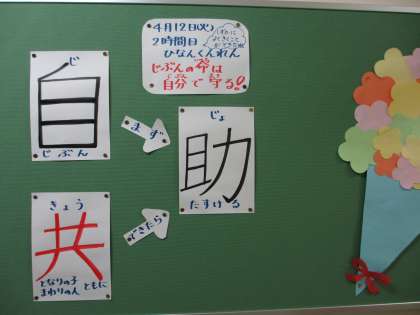 4月12日(火)
2時間目
ひなんくんれん
じぶんの命は
自分で守る!!
じ
自
じぶん
まず
じょ
助
たすける
きょう
共
となりの子
まわりの人
ともに
できたら